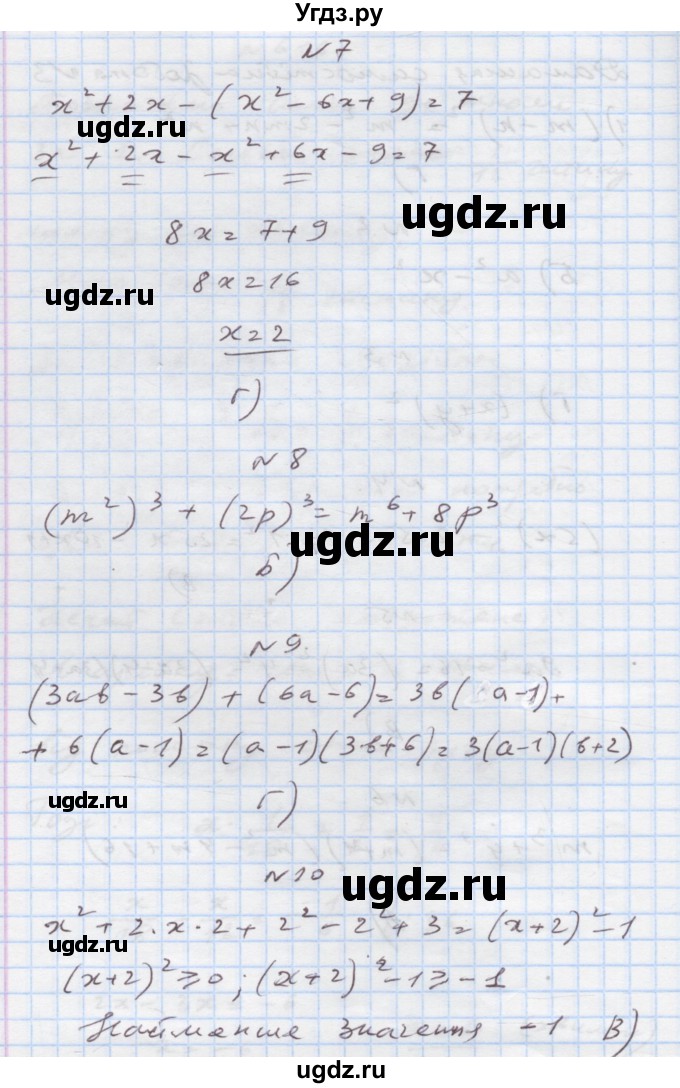 Угдз.ру
N7
x² + 2x - (x² - 6x + 9) = 7
ugdz.ru
x² + 2x - x² + 6x - 9 = 7
ugdz.ru
8x = 7 + 9
8x = 16
ugdz.ru
x = 2
г)
N8
(m²)³ + (2p)³ = m⁶ + 8p³
ugdz.ru
б)
N9.
(3ab - 3b) + (6a - 6) = 3b(a - 1) +
+ 6(a - 1) = (a - 1)(3b + 6) = 3(a - 1)(b + 2)
ugdz.ru
г)
N10
ugdz.ru
x² + 2·x·2 + 2² - 2² + 3 = (x + 2)² - 1
ugdz.ru
(x + 2)² ≥ 0; (x + 2)² - 1 ≥ -1
Найменше значення -1 В)
ugdz.ru
ugdz.ru